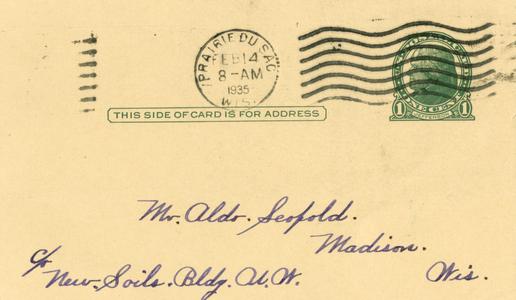 PRAIRIE DU SAC
FEB 14
8-AM
1935
WIS.
THIS SIDE OF CARD IS FOR ADDRESS
1 ONE CENT 1
JEFFERSON
Mr. Aldo. Leopold.
Madison.
c/o
New. Soils. Bldg. U. W. Wis.